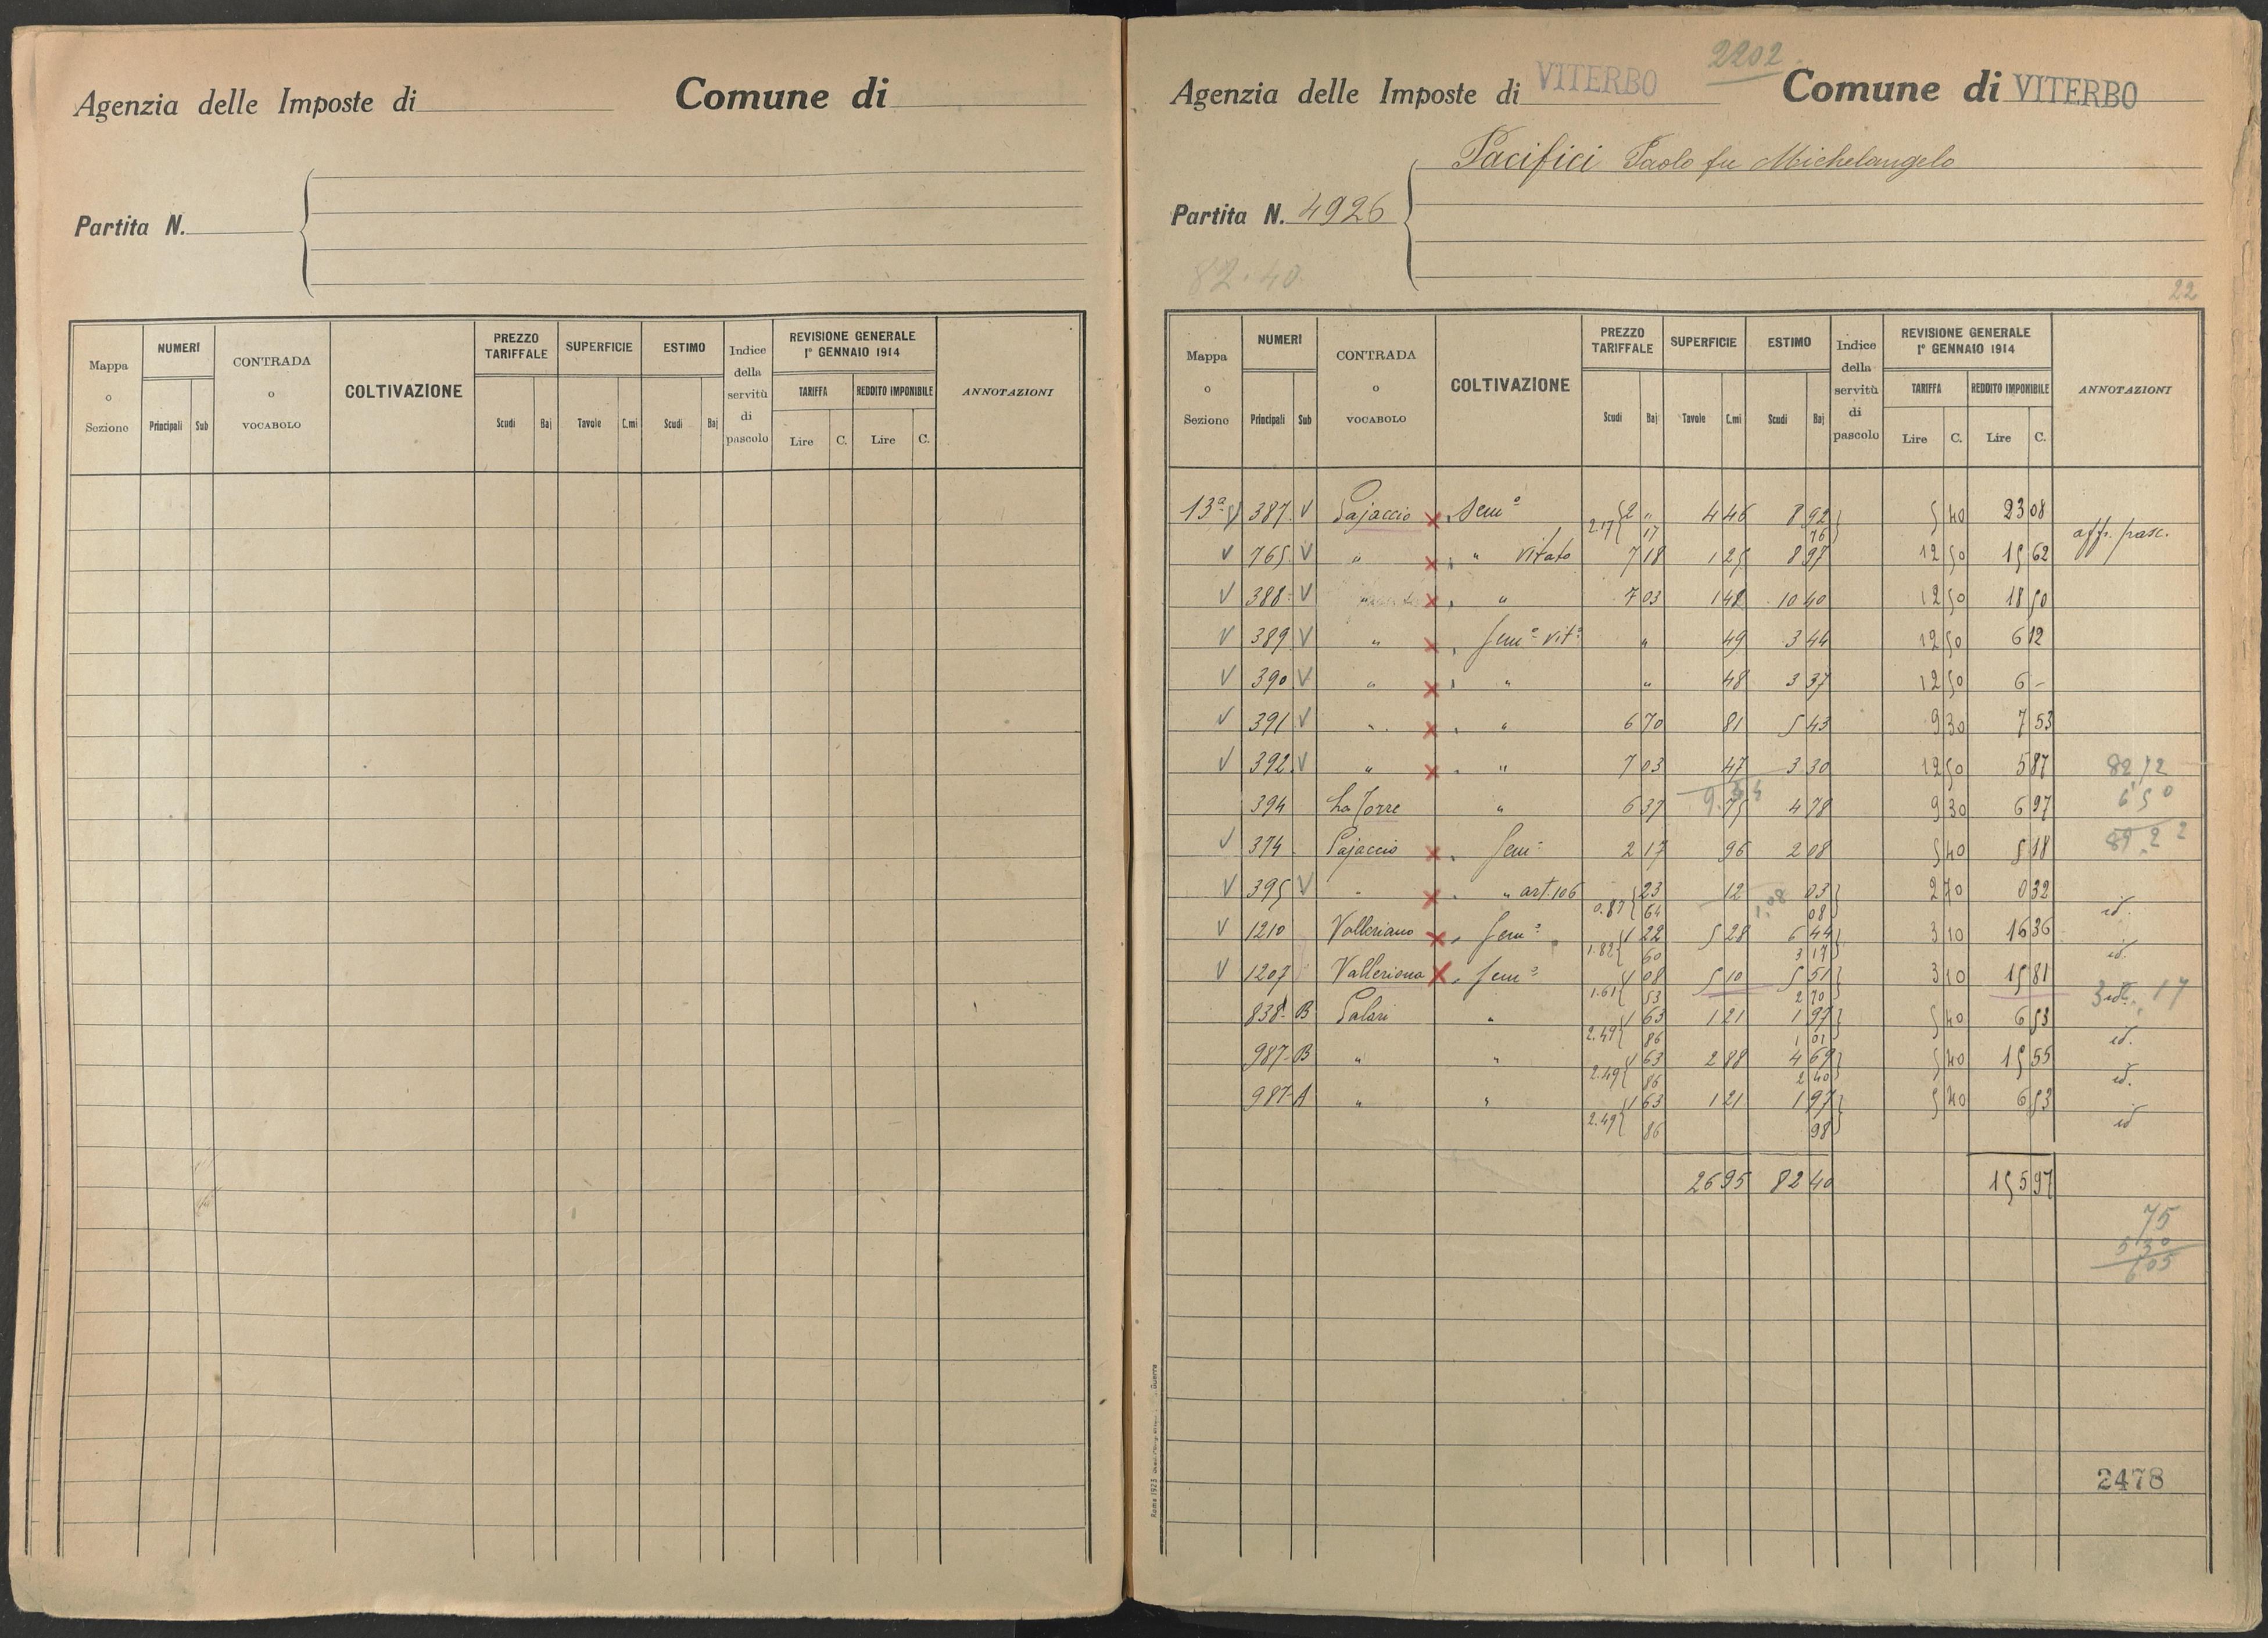 Agenzia delle Imposte di
Comune di
Partita N.
Mappa o Sezione
NUMERI
Principali Sub
CONTRADA o VOCABOLO
COLTIVAZIONE
PREZZO TARIFFALE
Scudi Baj
SUPERFICIE
Tavole C.mi
ESTIMO
Scudi Baj
Indice della servitù di pascolo
REVISIONE GENERALE 1° GENNAIO 1914
TARIFFA
Lire C.
REDDITO IMPONIBILE
Lire C.
ANNOTAZIONI
2202
Agenzia delle Imposte di VITERBO
Comune di VITERBO
Pacifici Paolo fu Michelangelo
Partita N. 4926
82.40
22
Mappa o Sezione
NUMERI
Principali Sub
CONTRADA o VOCABOLO
COLTIVAZIONE
PREZZO TARIFFALE
Scudi Baj
SUPERFICIE
Tavole C.mi
ESTIMO
Scudi Baj
Indice della servitù di pascolo
REVISIONE GENERALE 1° GENNAIO 1914
TARIFFA
Lire C.
REDDITO IMPONIBILE
Lire C.
ANNOTAZIONI
13ª V 387 V Pajaccio x Sem° 2 " 4 46 8 92 5 40 23 08
2.17 { 17 76 } aff. pasc.
V 765 V " x " vitato 7 18 1 25 8 97 12 50 15 62
V 388 V x " 7 03 1 48 10 40 12 50 18 50
V 389 V " x Sem° vit° " 49 3 44 12 50 6 12
V 390 V " x " " 48 3 37 12 50 6 -
V 391 V " x " 6 70 81 5 43 9 30 7 53
V 392 V " x " 7 03 47 3 30 12 50 5 87
394 La Torre " 6 37 75 4 78 9 30 6 97
V 374 Pajaccio x Sem° 2 17 96 2 08 5 40 5 18
V 395 V " x " art. 106 23 12 03 2 70 0 32
0.87 { 64 08 } id.
V 1210 Valleriano x Sem° 1 22 5 28 6 44 3 10 16 36
1.82 { 60 3 17 } id.
V 1207 Valleriana x Sem° 1 08 5 10 5 51 3 10 15 81
1.61 { 53 2 70 } id.
838 B Palari " 1 63 1 21 1 97 5 40 6 53
2.49 { 86 1 01 } id.
987 B " " 1 63 2 88 4 69 5 40 15 55
2.49 { 86 2 40 } id.
987 A " " 1 63 1 21 1 97 5 40 6 53
2.49 { 86 98 } id
26 95 82 40 155 97
75
5 30
6 05
2478
Roma 1923
Guerra